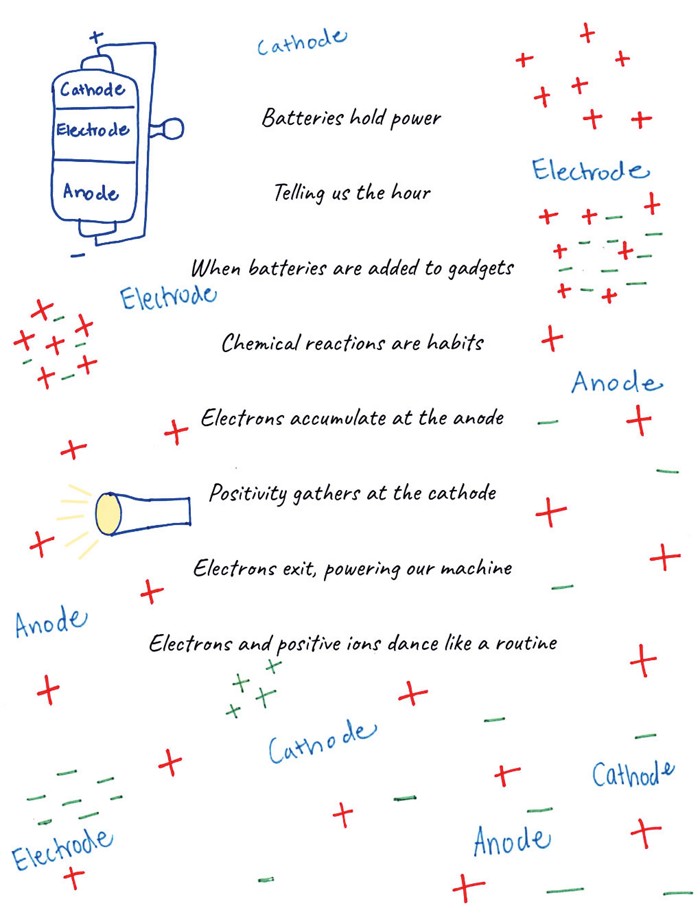 +
Cathode
Cathode
Electrode
Anode
-
Batteries hold power
Electrode
Telling us the hour
When batteries are added to gadgets
Electrode
Chemical reactions are habits
Anode
Electrons accumulate at the anode
Positivity gathers at the cathode
Electrons exit, powering our machine
Anode
Electrons and positive ions dance like a routine
Cathode
Cathode
Electrode
Anode